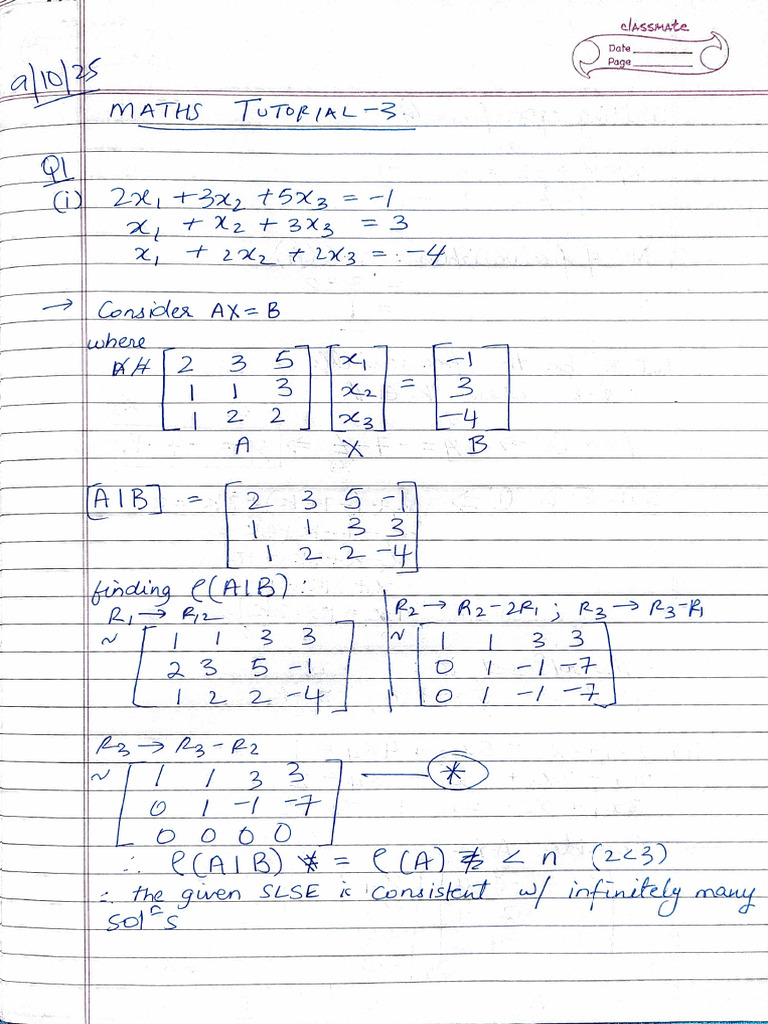 classmate
Date
Page
9/10/25
MATHS TUTORIAL-3.
Q1
(i) 2x₁ + 3x₂ + 5x₃ = -1
x₁ + x₂ + 3x₃ = 3
x₁ + 2x₂ + 2x₃ = -4
→ Consider AX = B
where
[2 3 5] [x₁] [-1]
[1 1 3] [x₂] = [3]
[1 2 2] [x₃] [-4]
A X B
[A|B] = [2 3 5 -1]
[1 1 3 3]
[1 2 2 -4]
finding ρ(A|B) :
R₁ → R₁₂
~ [1 1 3 3]
[2 3 5 -1]
[1 2 2 -4]
R₂ → R₂ - 2R₁ ; R₃ → R₃ - R₁
~ [1 1 3 3]
[0 1 -1 -7]
[0 1 -1 -7]
R₃ → R₃ - R₂
~ [1 1 3 3] — *
[0 1 -1 -7]
[0 0 0 0]
∴ ρ(A|B) = ρ(A) < n (2<3)
∴ the given SLSE is consistent w/ infinitely many
solⁿs